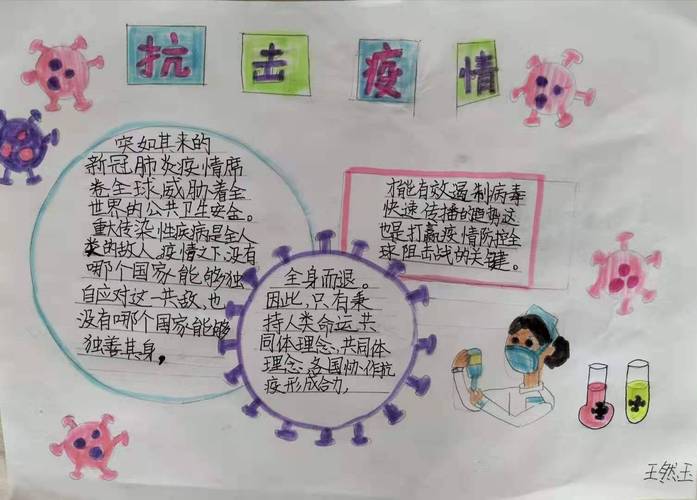 抗击疫情
突如其来的
新冠肺炎疫情席
卷全球威胁着全
世界的公共卫生安全。
重大传染性疾病是全人
类的敌人，疫情之下，没有
哪个国家能够独
自应对这一共敌，也
没有哪个国家能够
独善其身，
全身而退。
因此，只有秉
持人类命运共
同体理念，共同体
理念，各国协作抗
疫形成合力，
才能有效遏制病毒
快速传播的趋势这
也是打赢疫情防控全
球阻击战的关键。
王然玉